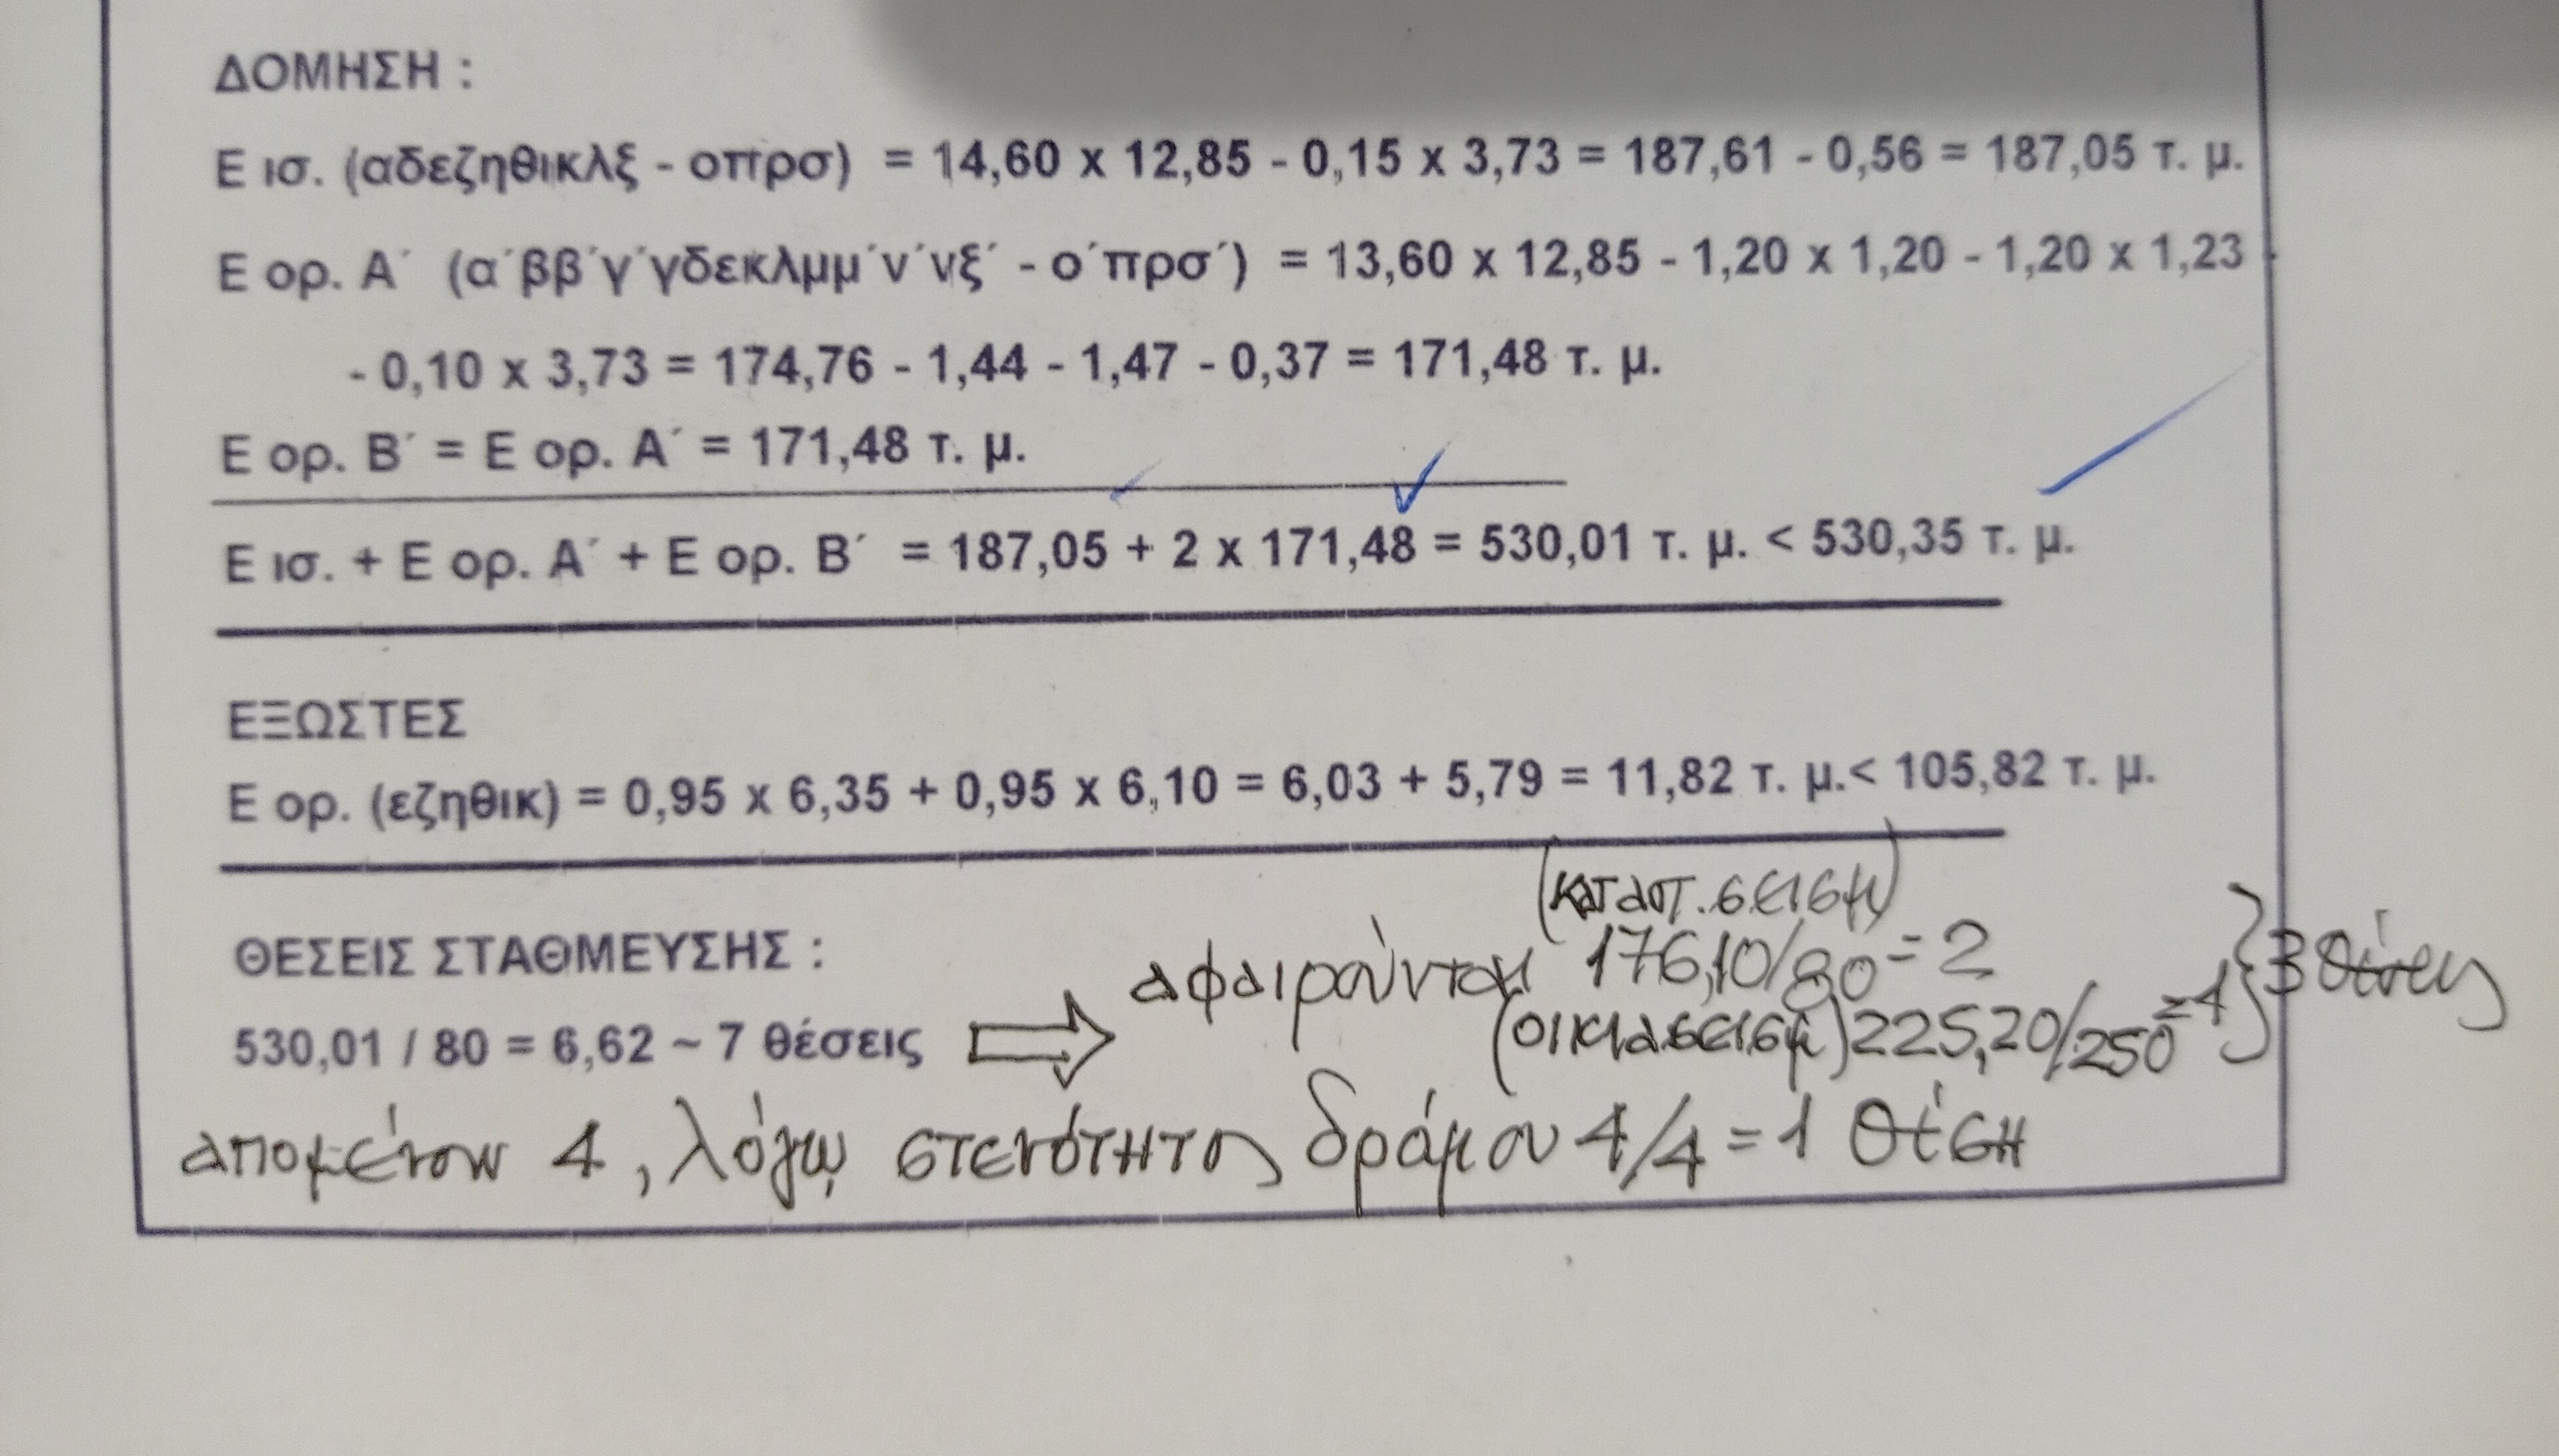 ΔΟΜΗΣΗ :
Ε ισ. (αδεζηθικλξ - οπρσ) = 14,60 x 12,85 - 0,15 x 3,73 = 187,61 - 0,56 = 187,05 τ. μ.
Ε ορ. Α΄ (α΄ββ΄γ΄γδεκλμμ΄ν΄νξ΄ - ο΄πρσ΄) = 13,60 x 12,85 - 1,20 x 1,20 - 1,20 x 1,23 -
- 0,10 x 3,73 = 174,76 - 1,44 - 1,47 - 0,37 = 171,48 τ. μ.
Ε ορ. Β΄ = Ε ορ. Α΄ = 171,48 τ. μ.
Ε ισ. + Ε ορ. Α΄ + Ε ορ. Β΄ = 187,05 + 2 x 171,48 = 530,01 τ. μ. < 530,35 τ. μ.
ΕΞΩΣΤΕΣ
Ε ορ. (εζηθικ) = 0,95 x 6,35 + 0,95 x 6,10 = 6,03 + 5,79 = 11,82 τ. μ.< 105,82 τ. μ.
(καταστ. σεισμ)
ΘΕΣΕΙΣ ΣΤΑΘΜΕΥΣΗΣ :
αφαιρούνται 176,10/80 = 2 } 3 θέσεις
530,01 / 80 = 6,62 ~ 7 θέσεις ⇒ (οικια σεισμ) 225,20/250 = 1
απομένουν 4, λόγω στενότητος δρόμου 4/4 = 1 θέση